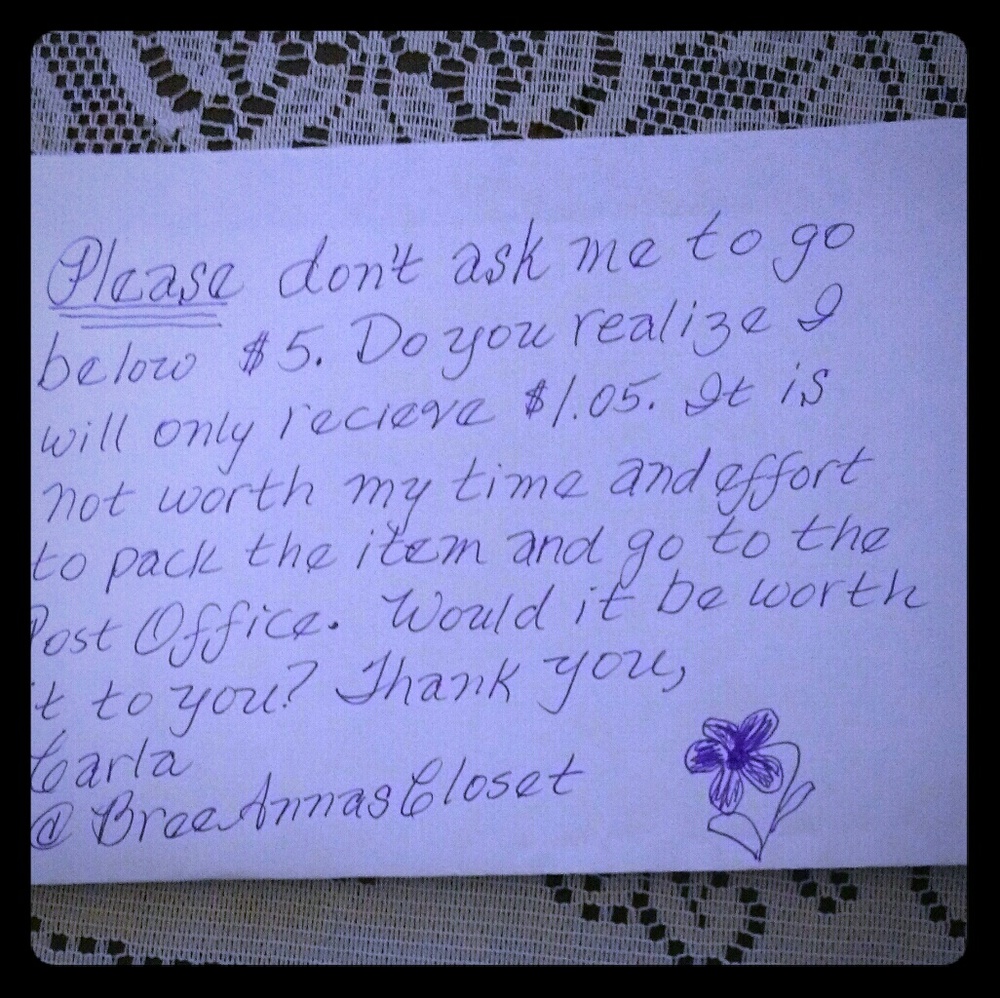 Please don't ask me to go
below $5. Do you realize I
will only recieve $1.05. It is
not worth my time and effort
to pack the item and go to the
Post Office. Would it be worth
it to you? Thank you,
Carla
@BreeAnnasCloset